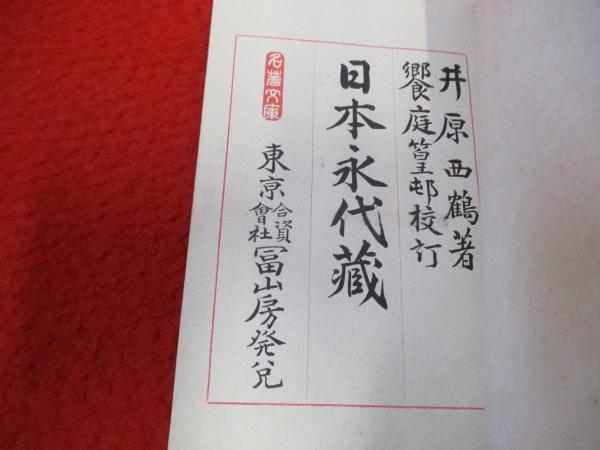 井原西鶴著
饗庭篁邨校訂
日本永代蔵
名著文庫
東京合資會社冨山房発兌